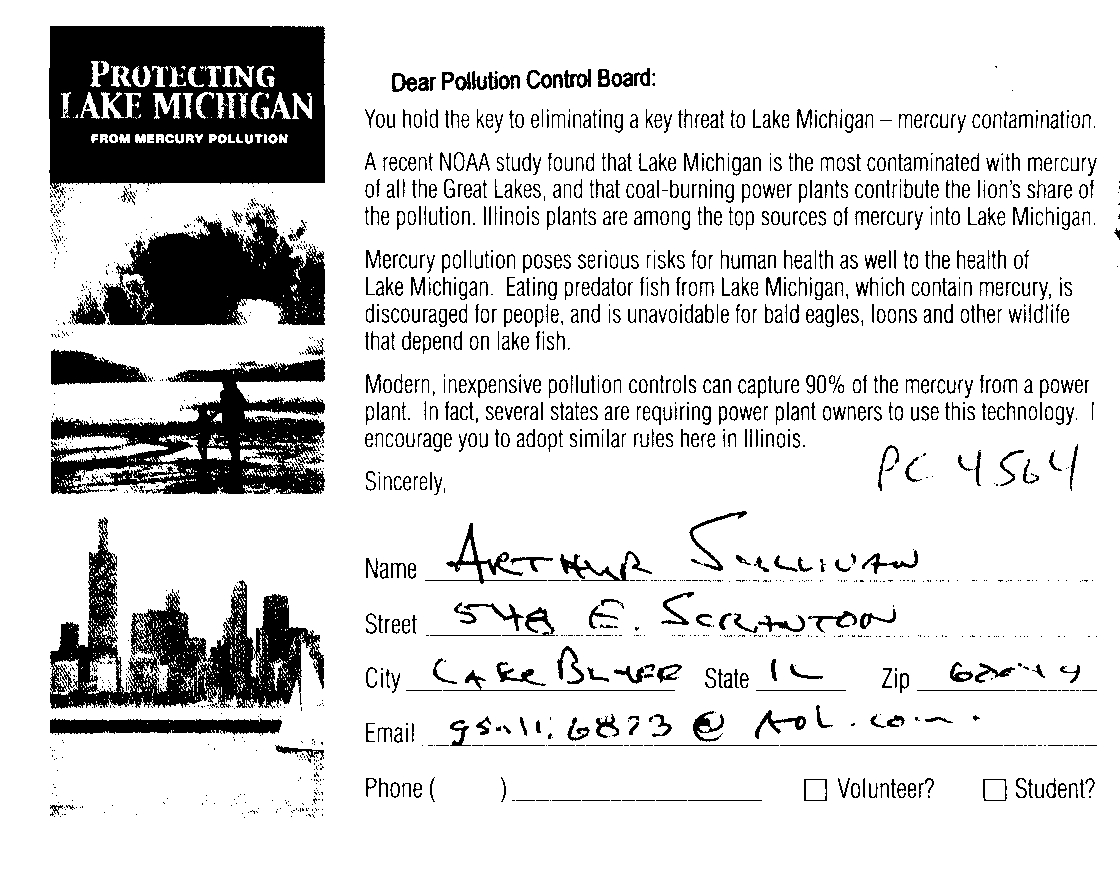 PROTECTING
LAKE MICHIGAN
FROM MERCURY POLLUTION
Dear Pollution Control Board:
You hold the key to eliminating a key threat to Lake Michigan – mercury contamination.
A recent NOAA study found that Lake Michigan is the most contaminated with mercury
of all the Great Lakes, and that coal-burning power plants contribute the lion's share of
the pollution. Illinois plants are among the top sources of mercury into Lake Michigan.
Mercury pollution poses serious risks for human health as well to the health of
Lake Michigan. Eating predator fish from Lake Michigan, which contain mercury, is
discouraged for people, and is unavoidable for bald eagles, loons and other wildlife
that depend on lake fish.
Modern, inexpensive pollution controls can capture 90% of the mercury from a power
plant. In fact, several states are requiring power plant owners to use this technology. I
encourage you to adopt similar rules here in Illinois.
PC 4564
Sincerely,
Name ARTHUR SULLIVAN
Street 548 E. SCRANTON
City LAKE BLUFF State IL Zip
Email @ AOL.com.
Phone ( ) Volunteer? Student?